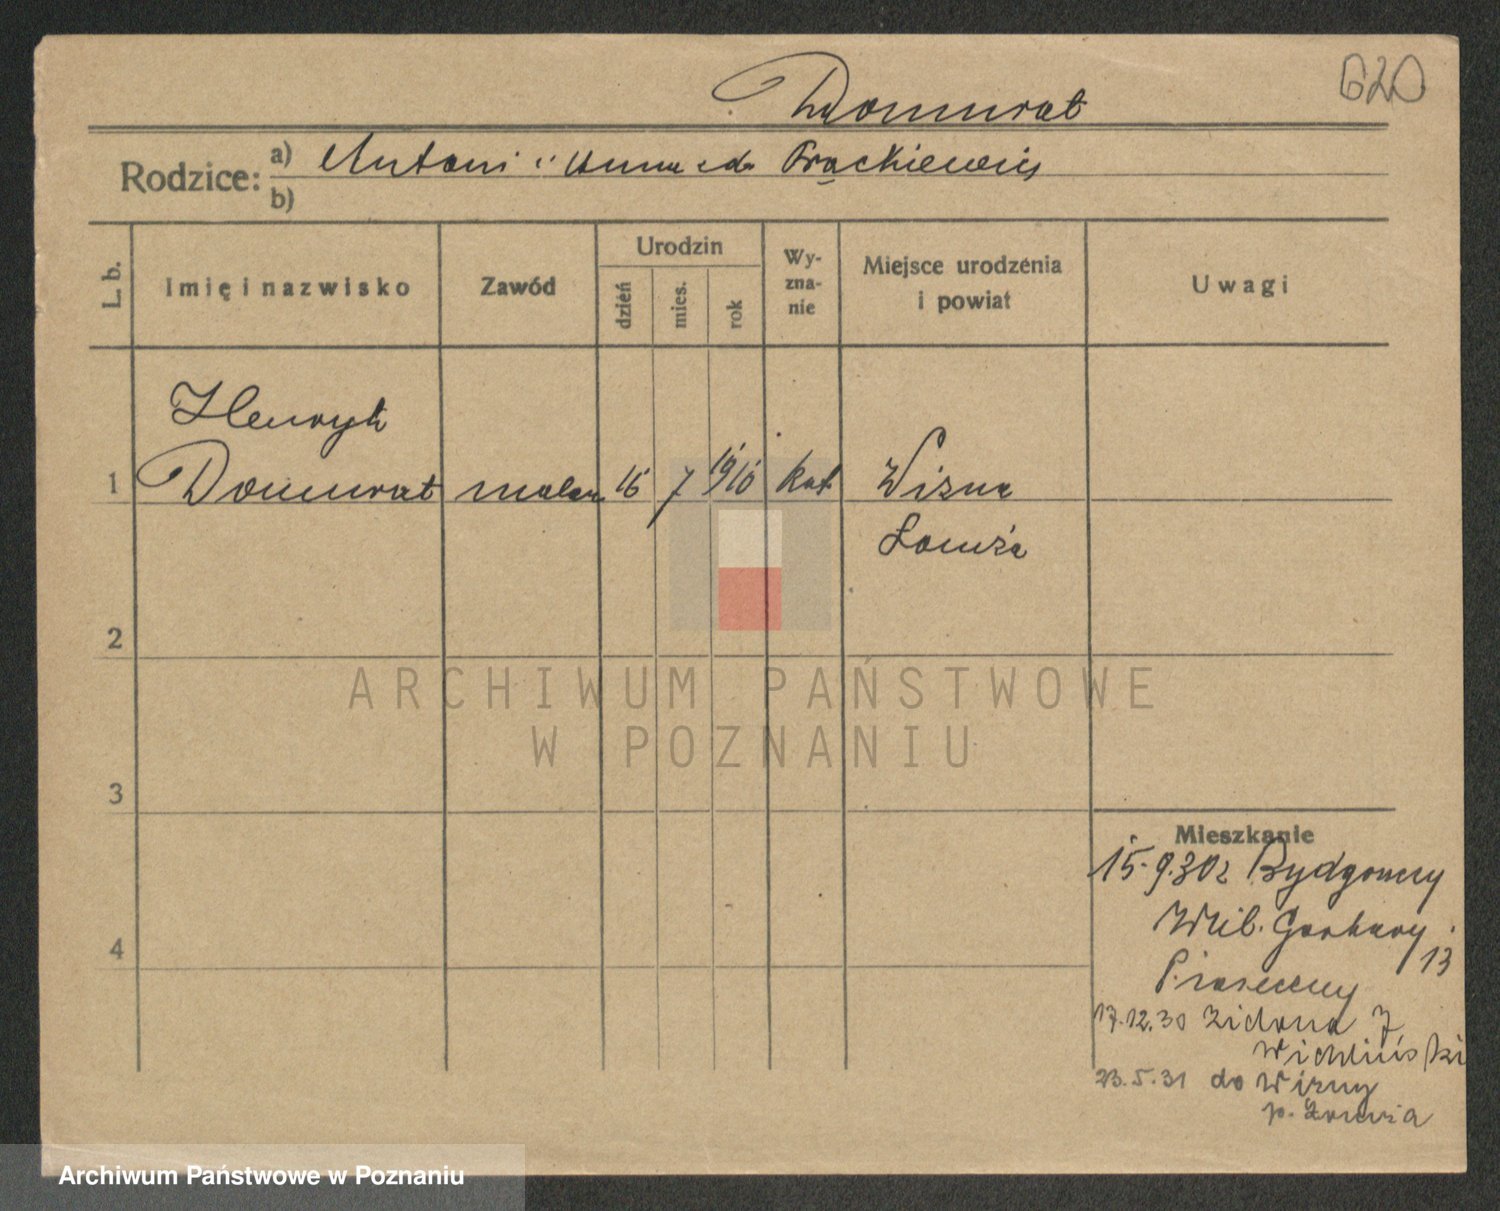 620
Domurat
Rodzice: a) Antoni i Anna zd. Prąckiewicz
b)
L. b.
Imię i nazwisko
Zawód
Urodzin
dzień
mies.
rok
Wy-
zna-
nie
Miejsce urodzenia
i powiat
Uwagi
Henryk
1 Domurat malarz 16 7 1910 kat Wizna
Łomża
2
ARCHIWUM PAŃSTWOWE
W POZNANIU
3
Mieszkanie
15.9.30r Bydgoszcz
Wlk. Garbary 13
4
Piaseczny
17.12.30 Zielona 7
Wichliński
23.5.31 do Wizny
p. Łomża
Archiwum Państwowe w Poznaniu